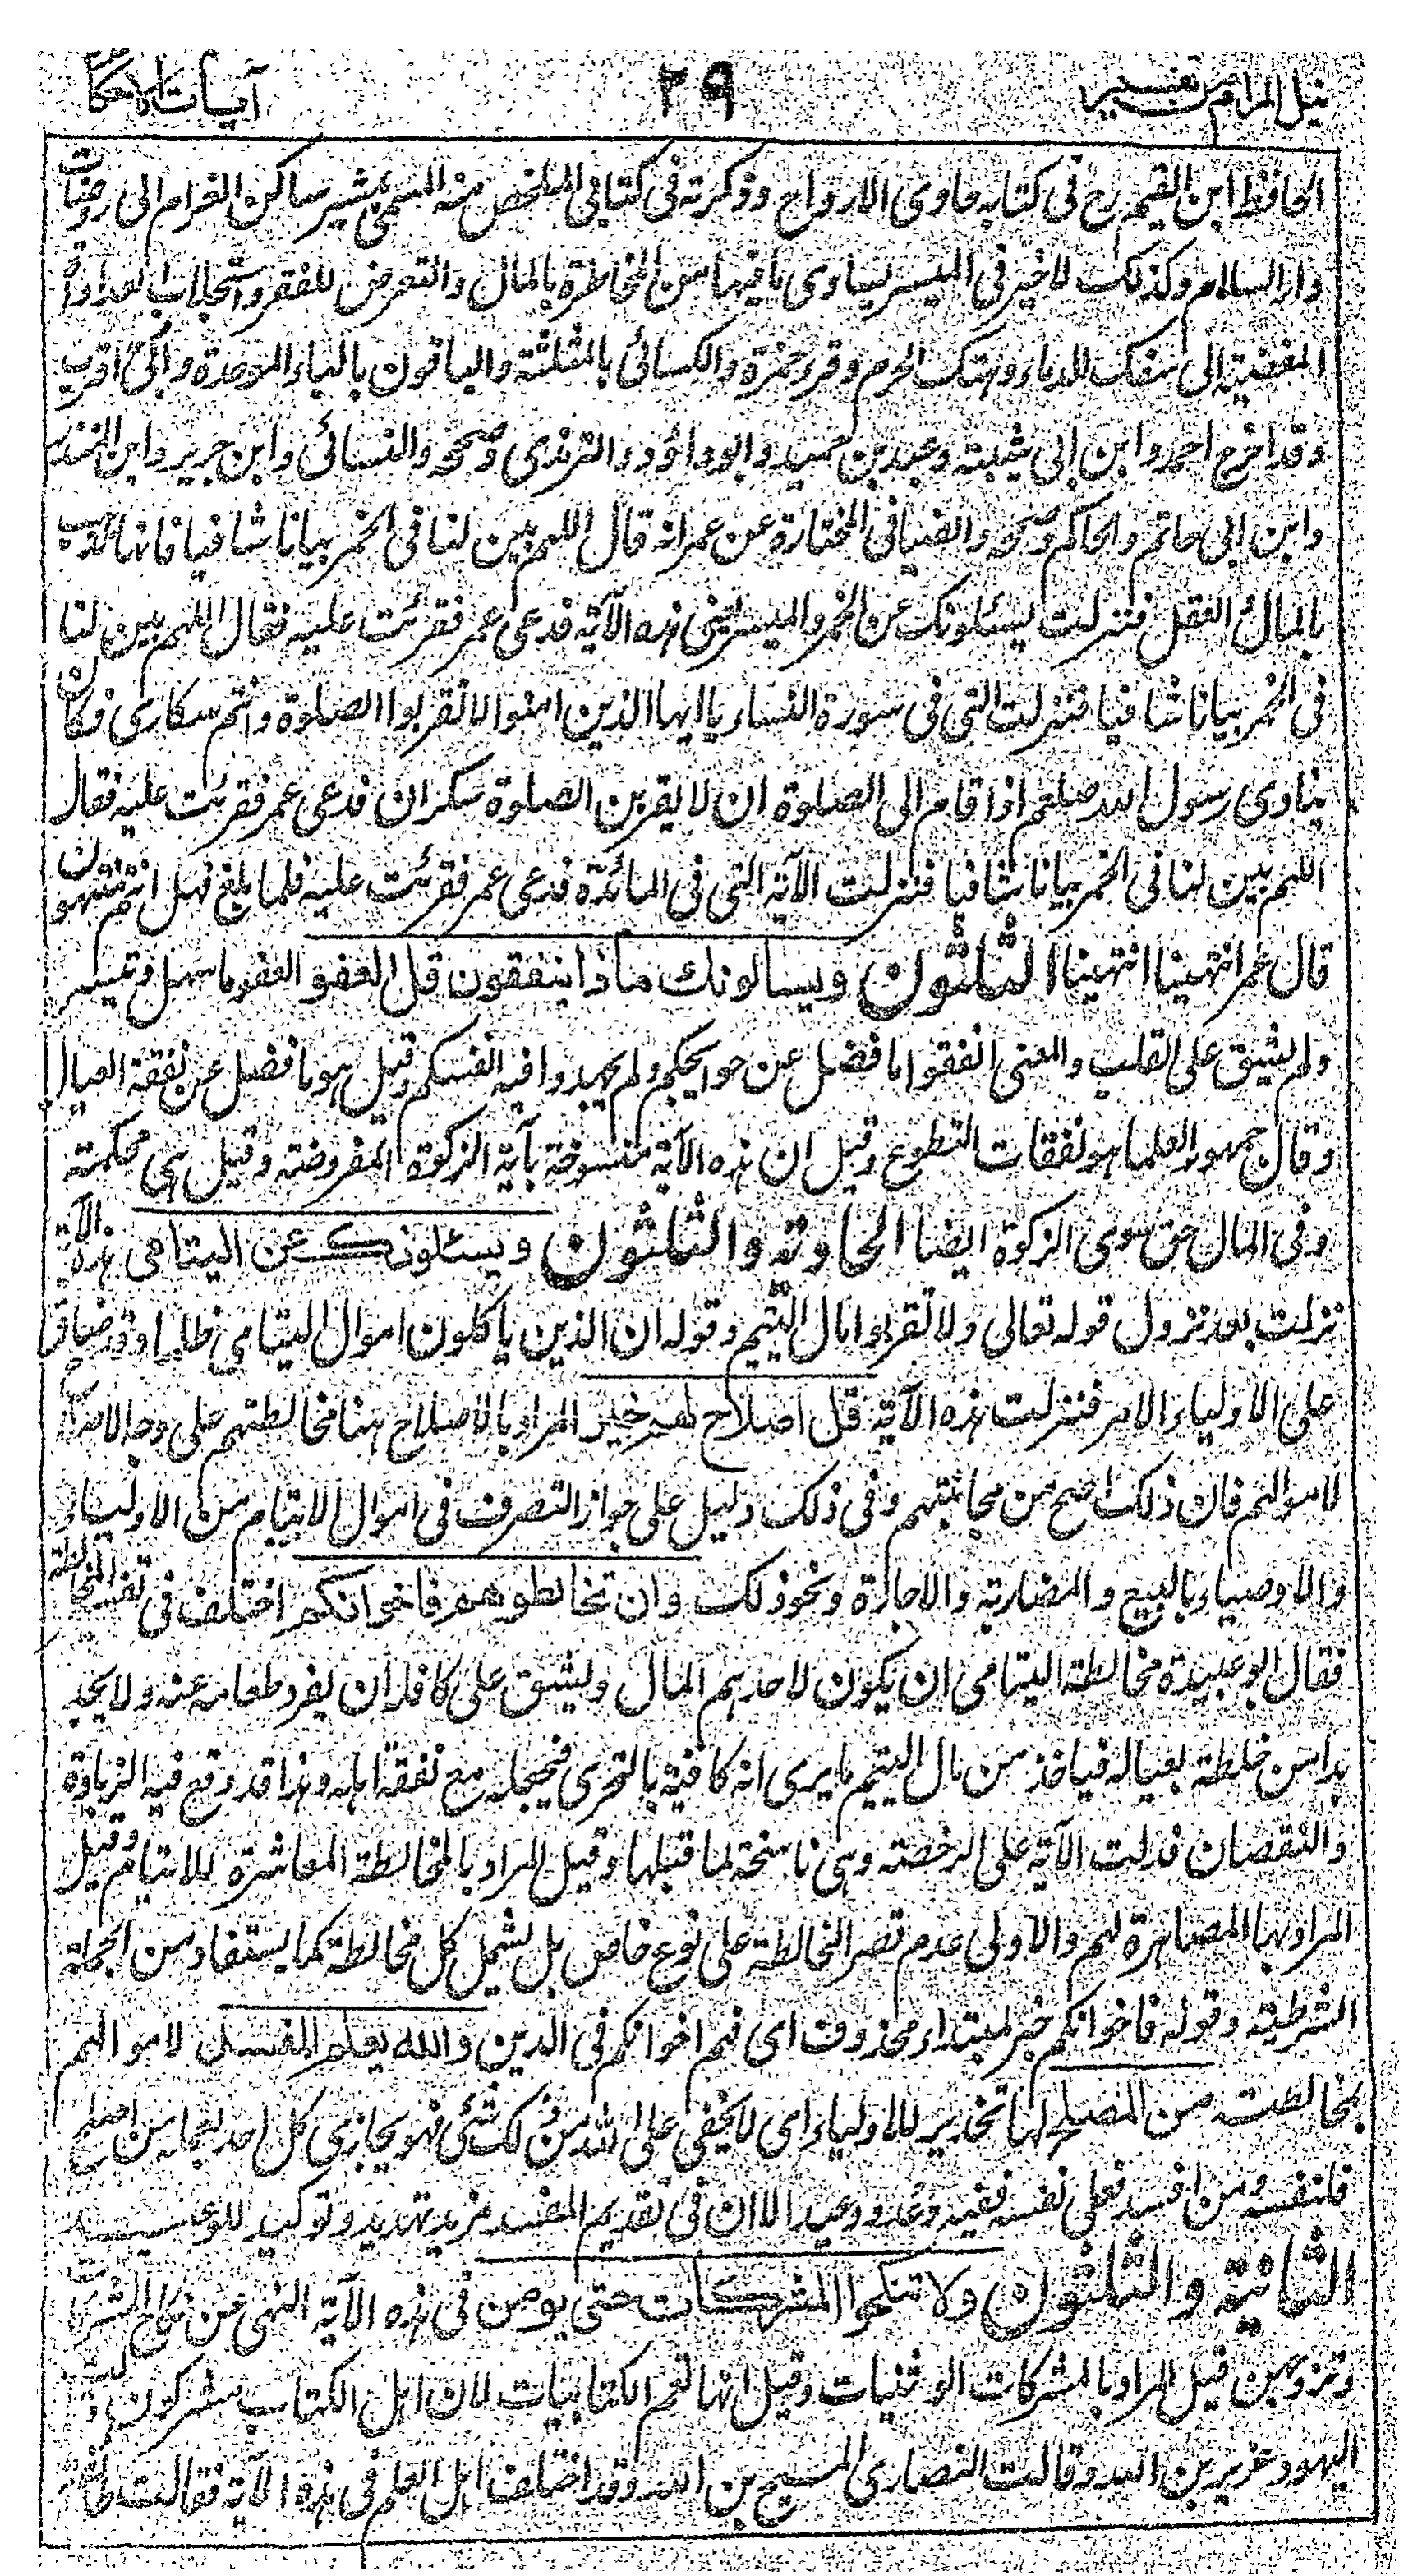 نيل المرام من تفسير ٢٩ آيات الاحكام
الحافظ ابن القيم رح فى كتابه حاوى الارواح وذكرته فى كتابى الملخص منه المسمى بمثير ساكن الغرام الى روضات
دار السلام وكذلك لا خير فى الميسر يساوى ما فيها من المخاطرة بالمال والتعرض للفقر واستجلاب العداوات
المفضية الى سفك الدماء وهتك الحرم وقرء حمزة والكسائى بالمثلثة والباقون بالباء الموحدة والجئ اقرب
وقد اخرج احمد وابن ابى شيبة وعبد بن حميد وابو داؤد والترمذى وصححه والنسائى وابن جرير وابن المنذر
وابن ابى حاتم والحاكم وصححه والضيا فى المختارة عن عمر انه قال اللهم بين لنا فى الخمر بيانا شافيا فانها تذهب
بالمال والعقل فنزلت يسئلونك عن الخمر والميسر يعنى هذه الآية فدعى عمر فقرئت عليه فقال اللهم بين لنا
فى الخمر بيانا شافيا فنزلت التى فى سورة النساء يا ايها الذين امنوا لا تقربوا الصلوة وانتم سكارى فكان
ينادى رسول الله صلعم اذا قام الى الصلوة ان لا يقربن الصلوة سكران فدعى عمر فقرئت عليه فقال
اللهم بين لنا فى الخمر بيانا شافيا فنزلت الآية التى فى المائدة فدعى عمر فقرئت عليه فلما بلغ فهل انتم منتهون
قال عمر انتهينا انتهينا الثلثون ويسالونك ماذا ينفقون قل العفو العفو ما سهل وتيسر
ولم يشق على القلب والمعنى انفقوا ما فضل عن حوايجكم ولم يجهدوا فيه انفسكم وقيل هو ما فضل عن نفقة العيال
وقال جمهور العلما هو نفقات التطوع وقيل ان هذه الآية منسوخة بآية الزكوة المفروضة وقيل هى محكمة
وفى المال حق سوى الزكوة ايضا الحادية والثلثون ويسئلونك عن اليتامى هذه الآية
نزلت بعد نزول قوله تعالى ولا تقربوا مال اليتيم وقوله ان الذين ياكلون اموال اليتامى ظلما وقد ضاق
على الاولياء الامر فنزلت هذه الآية قل اصلاح لهم خير المراد بالاصلاح هنا مخالطتهم على وجه الاصلاح
لاموالهم فان ذلك اصلح من مجانبتهم وفى ذلك دليل على جواز التصرف فى اموال الايتام من الاولياء
والاوصياء بالبيع والمضاربة والاجارة ونحو ذلك وان تخالطوهم فاخوانكم اختلف فى تفسير المخالطة
فقال ابو عبيدة مخالطة اليتامى ان يكون لاحدهم المال ويشق على كافله ان يفرد طعامه عنه ولا يجد
بدا من خلطة بعياله فياخذ من مال اليتيم ما يرى انه كافيه بالتحرى فيجعله مع نفقة اهله وهذا قد وقع فيه الزيادة
والنقصان فدلت الآية على الرخصة وهى ناسخة لما قبلها وقيل المراد بالمخالطة المعاشرة للايتام وقيل
المراد بها المصاهرة لهم والاولى عدم قصر المخالطة على نوع خاص بل يشمل كل مخالطة كما يستفاد من الجملة
الشرطية وقوله فاخوانكم خبر لمبتداء محذوف اى فهم اخوانكم فى الدين والله يعلم المفسد لاموالهم
بمخالطته من المصلح لها تحذير للاولياء اى لا يخفى على الله من ذلك شئ فهو يجازى كل احد بعمله من اصلح
فلنفسه ومن افسد فعلى نفسه ففيه وعد ووعيد الا ان فى تقديم المفسد مزيد تهديد وتوكيد للوعيد
الثانية والثلثون ولا تنكحوا المشركات حتى يومن فى هذه الآية النهى عن نكاح المشركات
وتزويجهن قيل المراد بالمشركات الوثنيات وقيل انها تعم الكتابيات لان اهل الكتاب مشركون قالت
اليهود عزير بن الله وقالت النصارى المسيح بن الله وقد اختلف اهل العلم فى هذه الآية فقالت طائفة